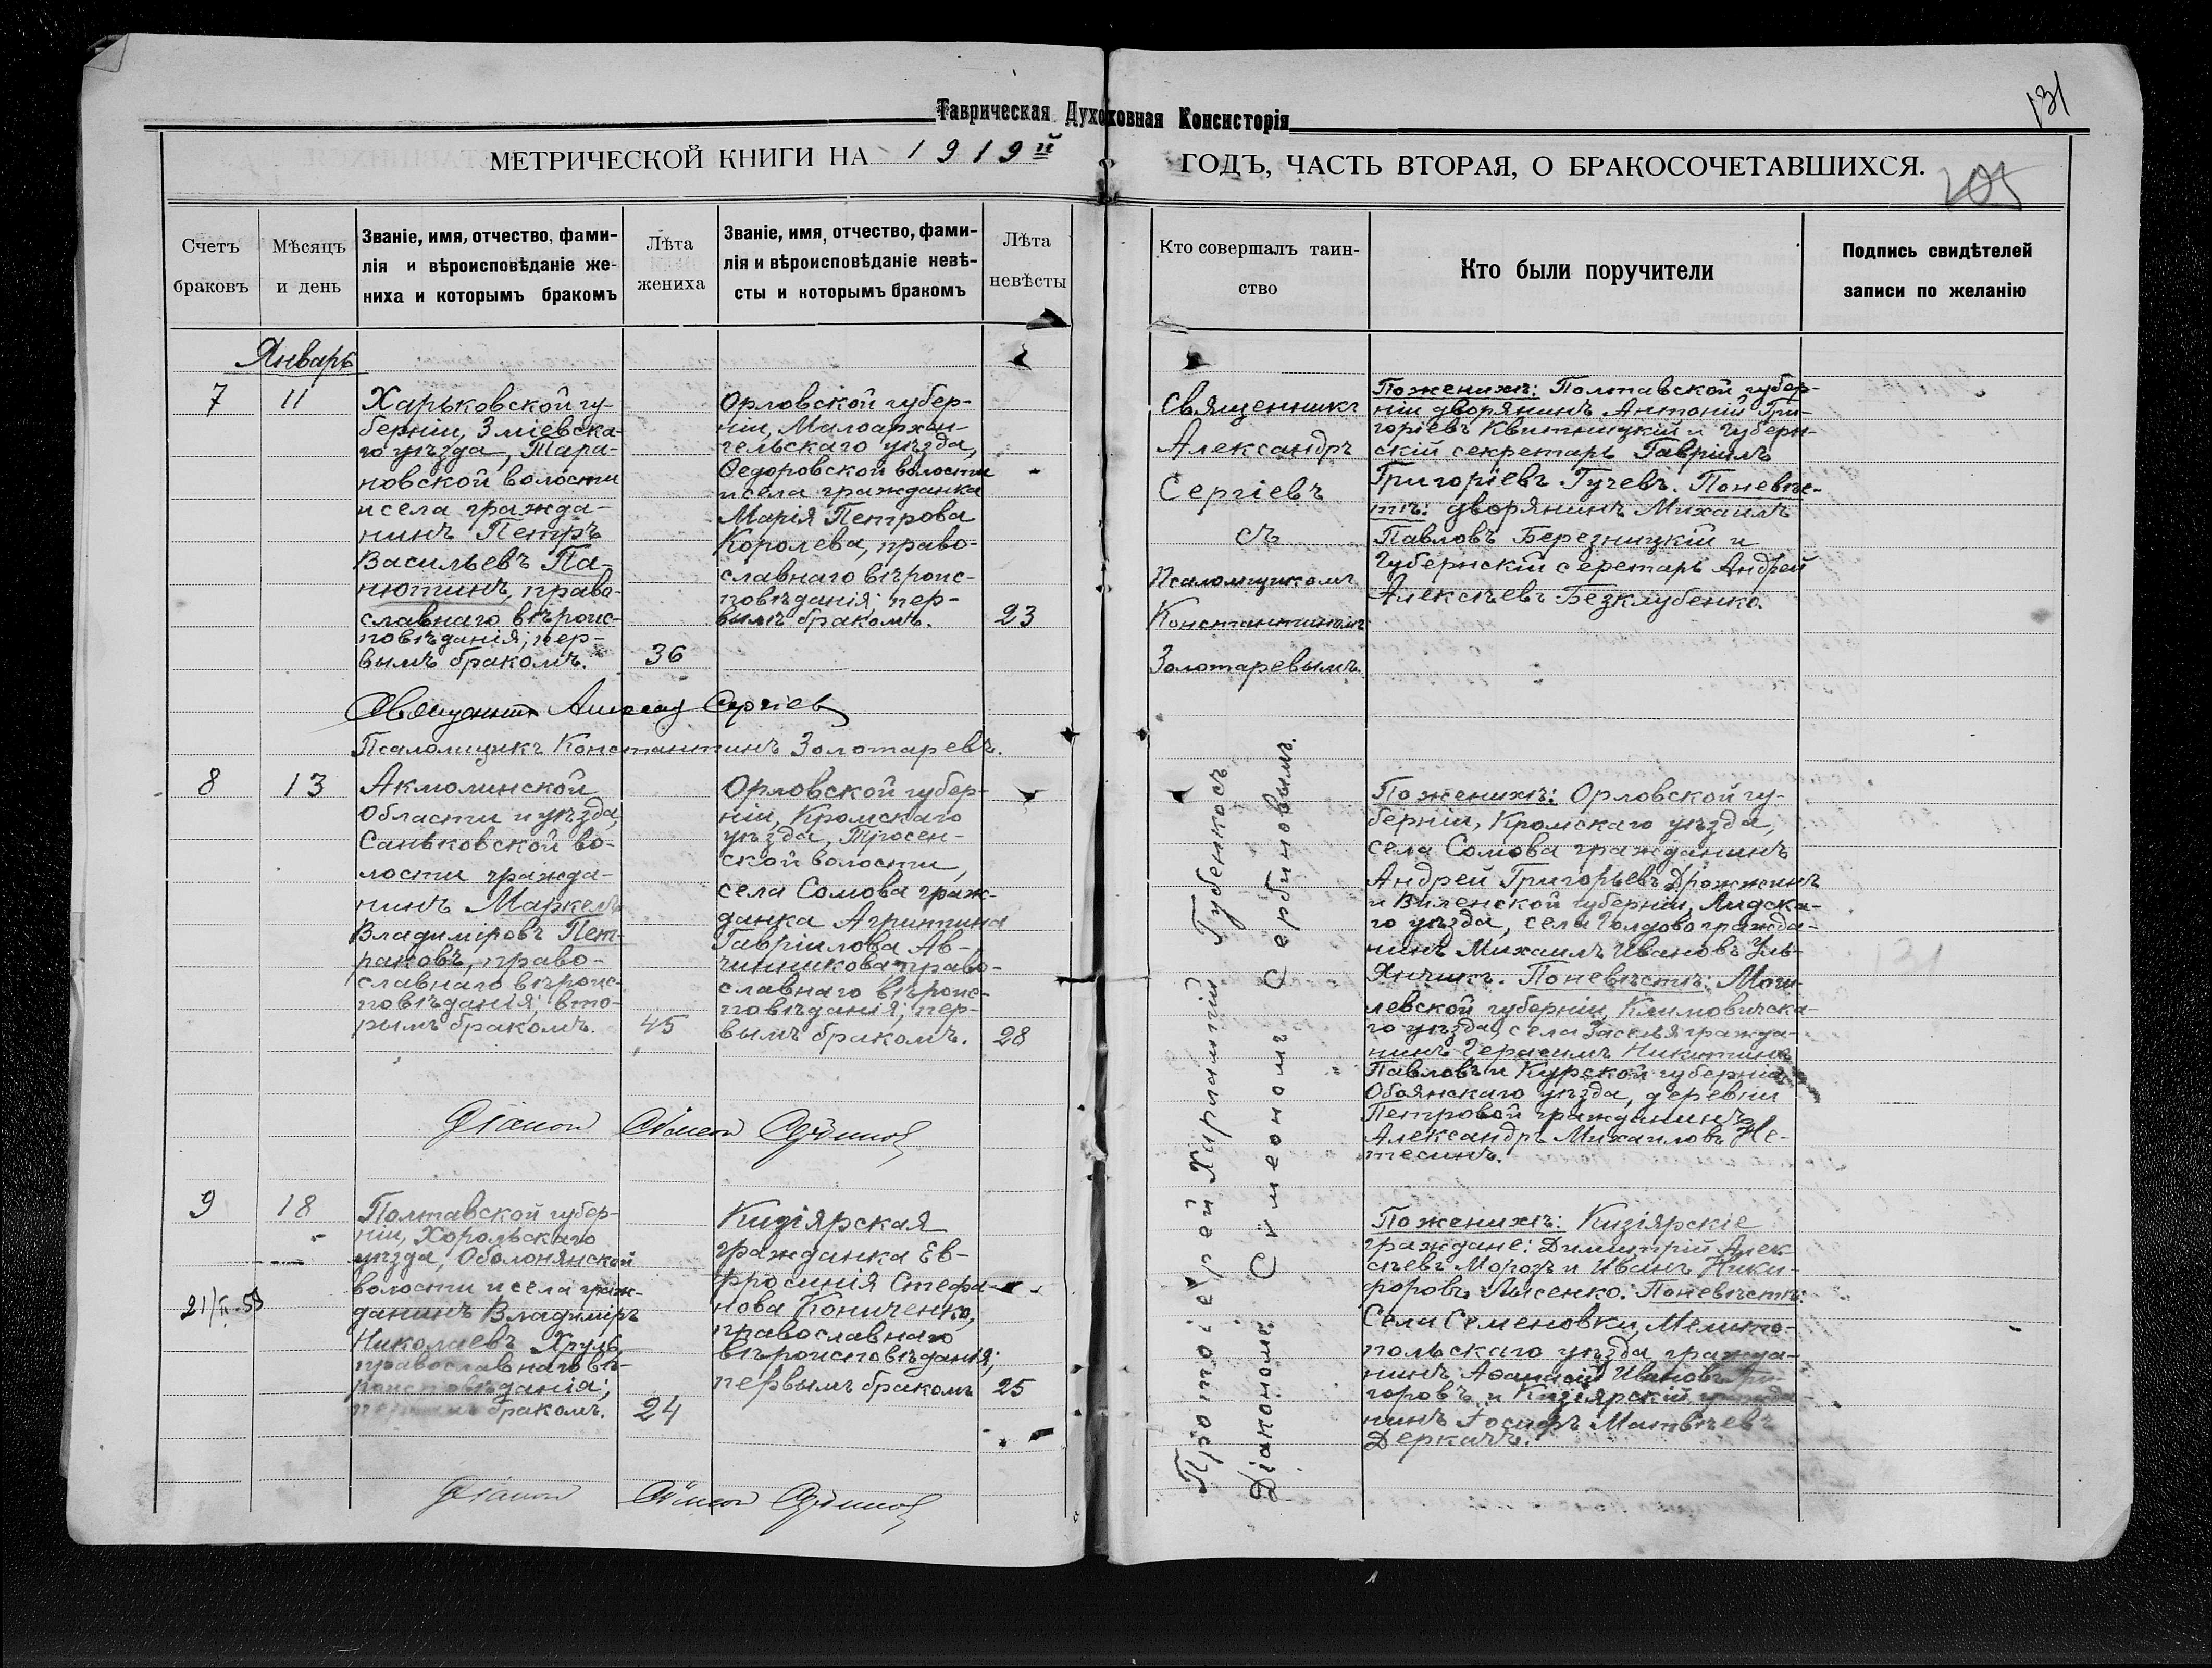 131
Таврическая Духовная Консисторія
МЕТРИЧЕСКОЙ КНИГИ НА 1919й ГОДЪ, ЧАСТЬ ВТОРАЯ, О БРАКОСОЧЕТАВШИХСЯ.
205
Счетъ
браковъ
Мѣсяцъ
и день
Званіе, имя, отчество, фами-
лія и вѣроисповѣданіе же-
ниха и которымъ бракомъ
Лѣта
жениха
Званіе, имя, отчество, фами-
лія и вѣроисповѣданіе невѣ-
сты и которымъ бракомъ
Лѣта
невѣсты
Кто совершалъ таин-
ство
Кто были поручители
Подпись свидѣтелей
записи по желанію
Январь
7
11
Харьковской гу-
берніи, Зміевска-
го уѣзда, Тара-
новской волости
и села гражда-
нинъ Петръ
Васильевъ Па-
нютинъ, право-
славнаго вѣроис-
повѣданія; пер-
вымъ бракомъ.
36
Орловской губер-
ніи, Малоархан-
гельскаго уѣзда,
Ѳедоровской волости
и села гражданка
Марія Петрова
Королева, право-
славнаго вѣроис-
повѣданія; пер-
вымъ бракомъ.
23
Священникъ
Александръ
Сергіевъ
съ
Псаломщикомъ
Константиномъ
Золотаревымъ
По женихѣ: Полтавской губер-
ніи дворянинъ Антоній Гри-
горіевъ Квитницкій и Губерн-
скій секретарь Гавріилъ
Григоріевъ Гучевъ. По невѣс-
тѣ: дворянинъ Михаилъ
Павловъ Березницкій и
Губернскій серетарь Андрей
Алексѣевъ Безклубенко.
Священникъ Сергіев
Псаломщикъ Константинъ Золотаревъ.
8
13
Акмолинской
Области и уѣзда,
Саньковской во-
лости гражда-
нинъ Маркелъ
Владиміровъ Пет-
раковъ, право-
славнаго вѣроис-
повѣданія; вто-
рымъ бракомъ.
45
Орловской губер-
ніи, Кромскаго
уѣзда,
ской волости,
села Сомова граж-
данка Агрипина
Гавріилова Ав-
чинникова право-
славнаго вѣроис-
повѣданія; пер-
вымъ бракомъ.
28
Протоіерей Харлампій Губенкосъ
Діакономъ Симеономъ Сербиновымъ.
По женихѣ: Орловской гу-
берніи, Кромскаго уѣзда,
села Сомова гражданинъ
Андрей Григорьевъ Дрожжинъ
и Виленской губерніи, Лидска-
го уѣзда, села Голдово гражда-
нинъ Михаилъ Ивановъ Уль-
янчикъ. По невѣстѣ: Моги-
левской губерніи, Климовичска-
го уѣзда, села гражда-
нинъ Герасимъ Никитинъ
Павловъ и Курской губерніи
Обоянскаго уѣзда, деревни
Петровой гражданинъ
Александръ Михаиловъ Не-
тесинъ.
Діакон Симеон Сербинов
9
18
21/II-53
Полтавской губер-
ніи, Хорольскаго
уѣзда, Оболонянской
волости и села граж-
данинъ Владиміръ
Николаевъ Хруль,
православнаго вѣ-
роисповѣданія;
первымъ бракомъ.
24
Кизіярская
гражданка Ев-
фросинія Стефа-
нова Кониченко,
православнаго
вѣроисповѣданія;
первымъ бракомъ
25
По женихѣ: Кизіярскіе
граждане: Димитрій Алек-
сѣевъ Морозъ и Иванъ Ники-
форовъ Лысенко. По невѣстѣ:
Села Семеновки, Мелито-
польскаго уѣзда, гражда-
нинъ Аѳанасій Ивановъ Гри-
горовъ и Кизіярскій гражда-
нинъ Іосифъ Матвѣевъ
Деркачъ.
Діакон Симеон Сербинов